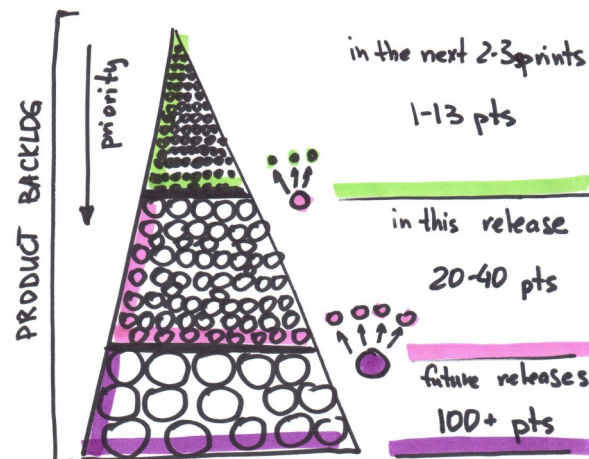 PRODUCT BACKLOG
priority
in the next 2-3 sprints
1-13 pts
in this release
20-40 pts
future releases
100+ pts